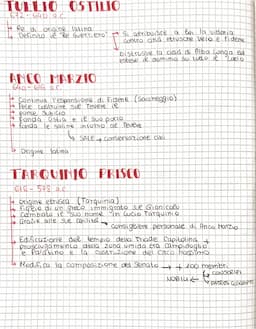 TULLIO OSTILIO
672 - 640 a.C.
Re di origine latina
Definito il "Re guerriero"
Si attribuisce a lui la vittoria
contro città etrusche Veio e Fidene
Distrusse la città di Alba Longa ed
estese il dominio su tutto il "Lazio
ANCO MARZIO
640 - 616 a.C.
Continua l'espansione di Fidene (Saccheggio)
Fece costruire sul Tevere il
ponte Sublicio
Fonda Ostia e il suo porto
Fonda le saline intorno al Tevere
SALE → conservazione cibi
Origine latina
TARQUINIO PRISCO
616 - 578 a.C.
Origine etrusca (Tarquinia)
Figlio di un greco immigrato sul Gianicolo
Cambiato il suo nome in Lucio Tarquinio
Grazie alle sue
consigliere personale di Anco Marzio
Edificazione del tempio della Triade Capitolina,
prosciugamento della zona umida tra Campidoglio
e Palatino e la costruzione del Circo Massimo
Modifica la composizione del Senato → + 200 membri
NOBILI